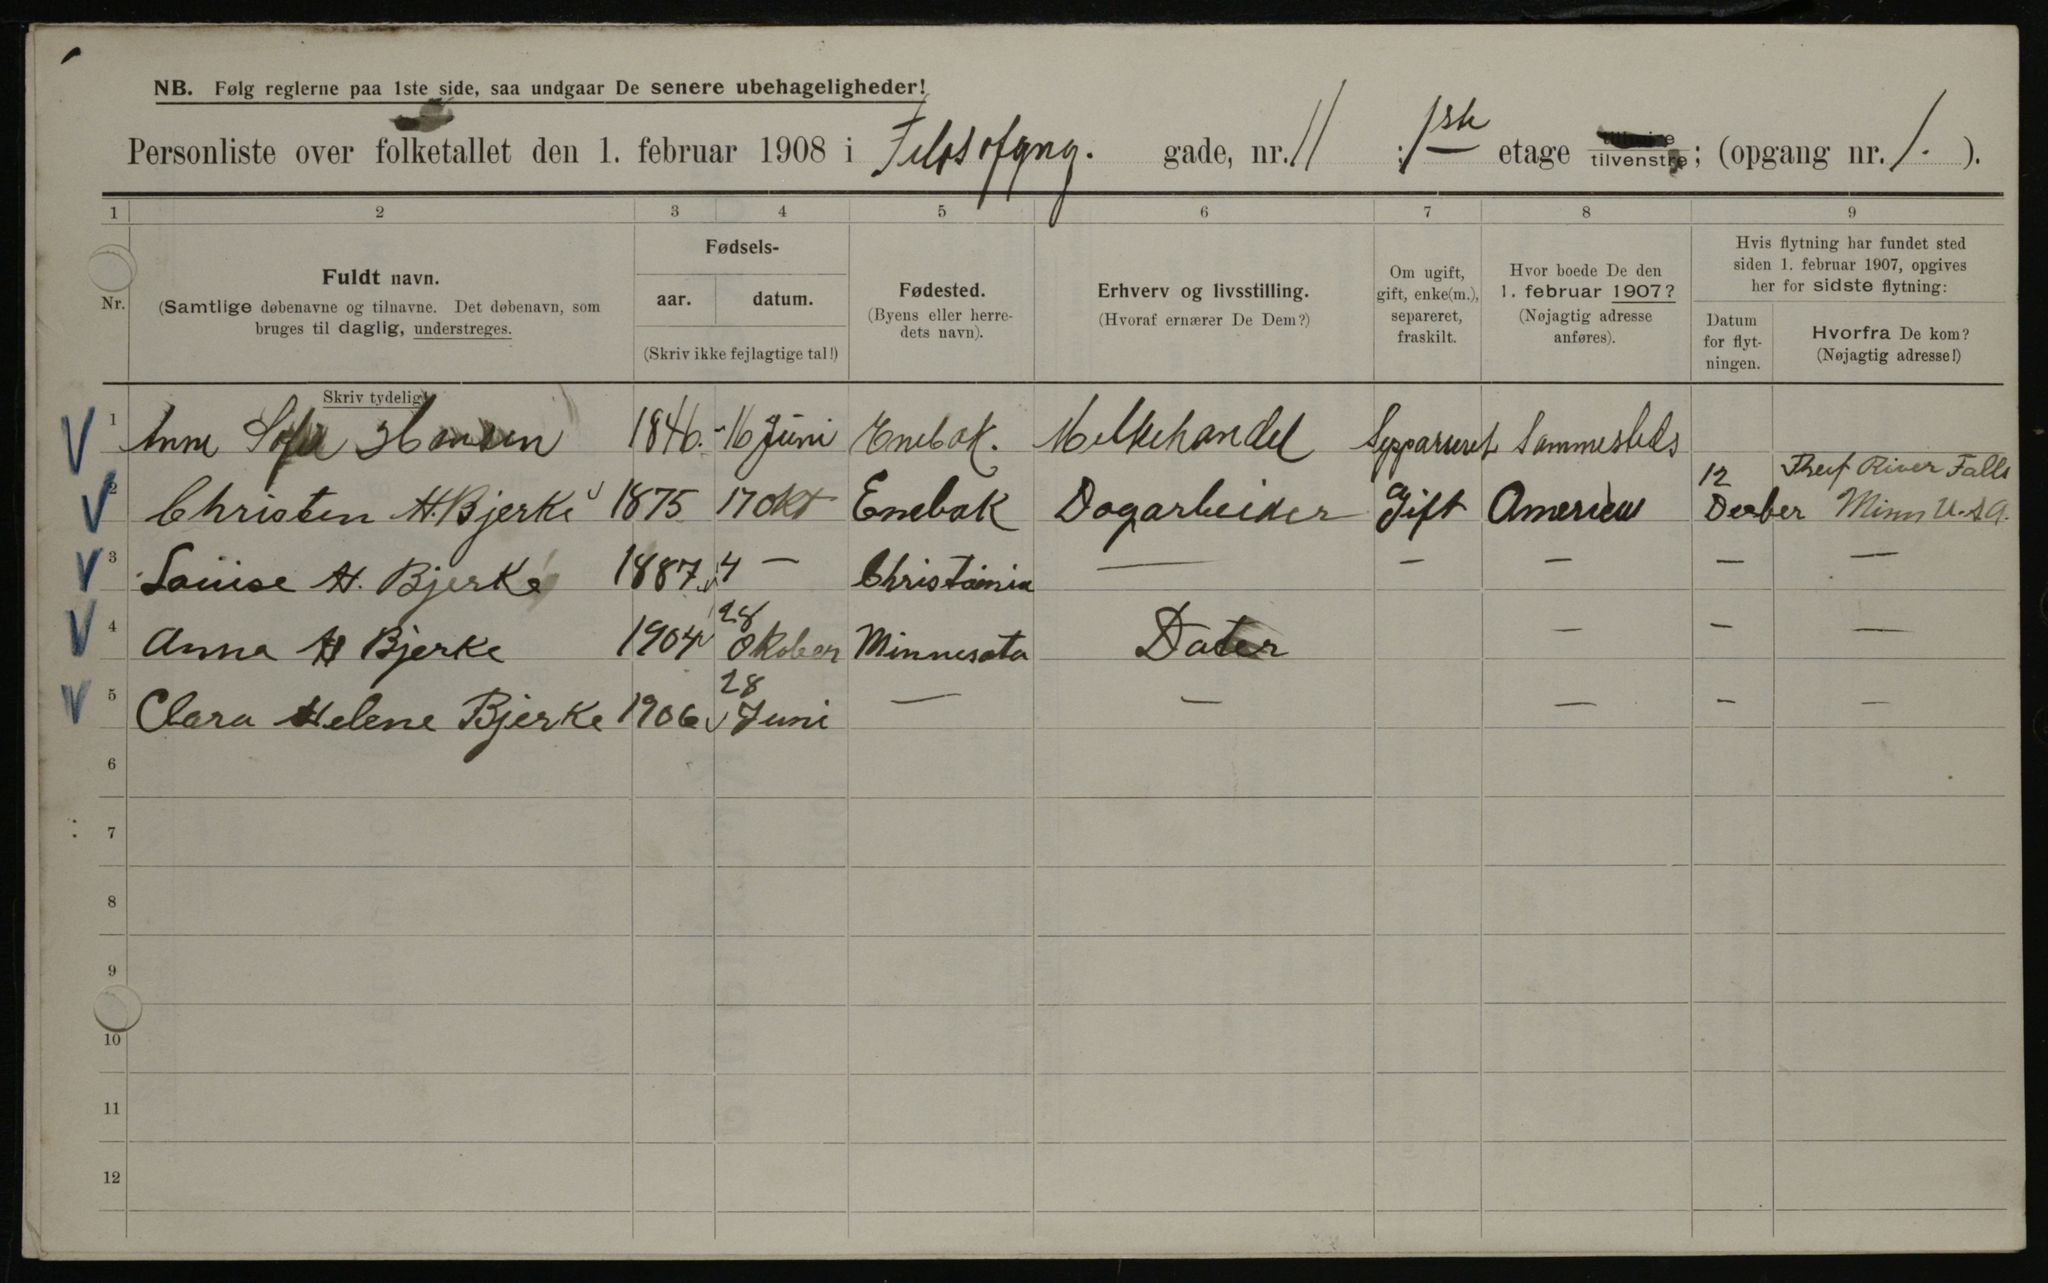 NB. Følg reglerne paa 1ste side, saa undgaar De senere ubehageligheder!
Personliste over folketallet den 1. februar 1908 i Filosofgng. gade, nr. 11 ; 1ste etage tilvenstre; (opgang nr. 1. ).
1 2 3 4 5 6 7 8 9
Nr.
Fuldt navn.
(Samtlige døbenavne og tilnavne. Det døbenavn, som
bruges til daglig, understreges.
Fødsels-
aar. datum.
(Skriv ikke fejlagtige tal!)
Fødested.
(Byens eller herre-
dets navn).
Erhverv og livsstilling.
(Hvoraf ernærer De Dem?)
Om ugift,
gift, enke(m.),
separeret,
fraskilt.
Hvor boede De den
1. februar 1907?
(Nøjagtig adresse
anføres).
Hvis flytning har fundet sted
siden 1. februar 1907, opgives
her for sidste flytning:
Datum
for flyt-
ningen.
Hvorfra De kom?
(Nøjagtig adresse!)
Skriv tydelig!
1 Anne Sofie Hansen 1846. 16 Juni Enebak. Melkehandel Sepparieret Sammesteds
2 Christen H. Bjerke 1875 17 Okt Enebak Dagarbeider Gift America 12 Decber Theif River Falls Minn U.S.A.
3 Louise H. Bjerke 1887 4 — Christiania — — — — —
4 Anna H Bjerke 1904 28 Oktober Minnesota Dater — — —
5 Clara Helene Bjerke 1906 28 Juni — — — — —
6
7
8
9
10
11
12